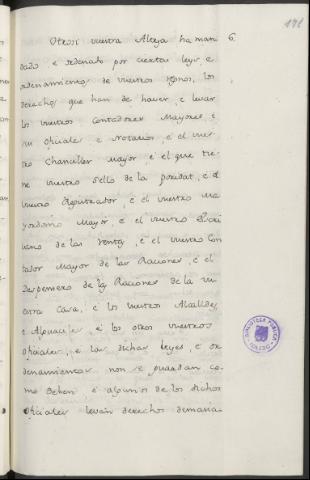 Otrosi vuestra Alteza ha man 6.
dado e ordenado por ciertas leyes e
ordenamientos de vuestros Reynos, los
derechos que han de haver, e levar
los vuestros Contadores Mayores e
sus oficiales e Notarios, e el vues
tro Chanciller mayor, e el que tie
ne vuestro sello de la poridat, e el
vuestro Registrador, e el vuestro Ma
yordomo Mayor, e el vuestro Escri
bano de las rentas, e el vuestro Con
tador Mayor de las Raciones, e el
Despensero de las Raciones de la vu
estra Casa, e los vuestros Alcaldes,
e Alguaciles e los otros vuestros
oficiales, e las dichas leyes, e or
denamientos non se guardan co
mo deben e algunos de los dichos
oficiales levan derechos demasia
BIBLIOTECA PUBLICA